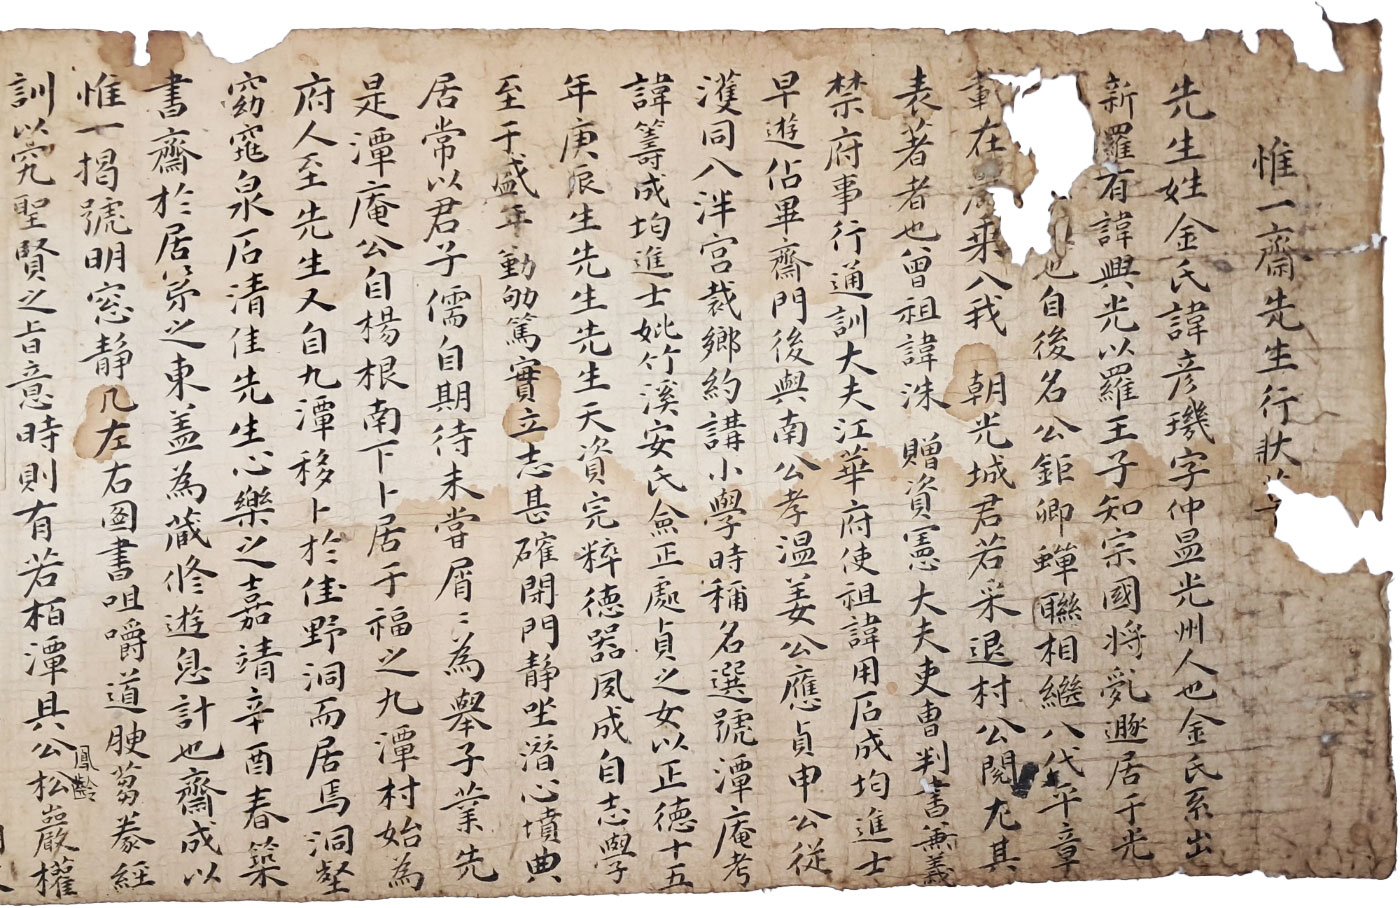 惟一齋先生行狀草
先生姓金氏諱彦璣字仲昷光州人也金氏系出
新羅有諱興光以羅王子知宗國將亂遯居于光
也自後名公鉅卿蟬聯相繼八代平章
載在乘入我 朝光城君若采退村公閱尤其
表著者也曾祖諱洙 贈資憲大夫吏曹判書兼義
禁府事行通訓大夫江華府使祖諱用石成均進士
早遊佔畢齋門後與南公孝溫姜公應貞申公從
濩同入泮宮裁鄕約講小學時稱名選號潭庵考
諱籌成均進士妣竹溪安氏僉正處貞之女以正德十五
年庚辰生先生先生天資完粹德器夙成自志學
至于盛年勤劬篤實立志甚確閉門静坐潛心墳典
居常以君子儒自期待未嘗屑〻為舉子業先
是潭庵公自楊根南下卜居于福之九潭村始為
府人至先生又自九潭移卜於佳野洞而居焉洞壑
窈窕泉石清佳先生心樂之嘉靖辛酉春築
書齋於居第之東盖為藏修遊息計也齋成以
惟一揭號明窓静几左右圖書咀嚼道腴蒭豢經
訓以究聖賢之旨意時則有若栢潭具公鳳齡松巖權